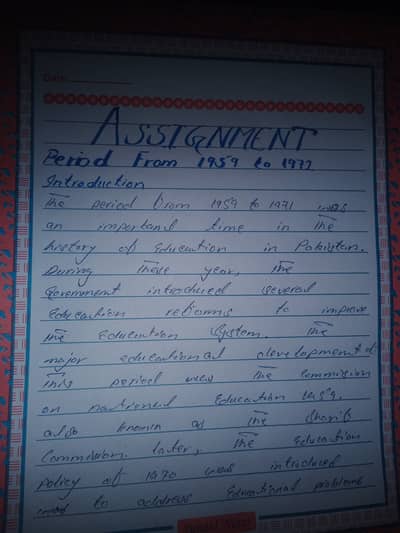 Date:
ASSIGNMENT
Period From 1959 to 1972
Introduction
The period from 1959 to 1971 was
an important time in the
history of Education in Pakistan.
During these year, the
Government introduced several
education reforms to improve
the Education System. The
major educational development of
this period was the Commission
on National Education 1959,
also known as the Sharif
Commission. later, the Education
Policy of 1970 was introduced
to address Educational problems